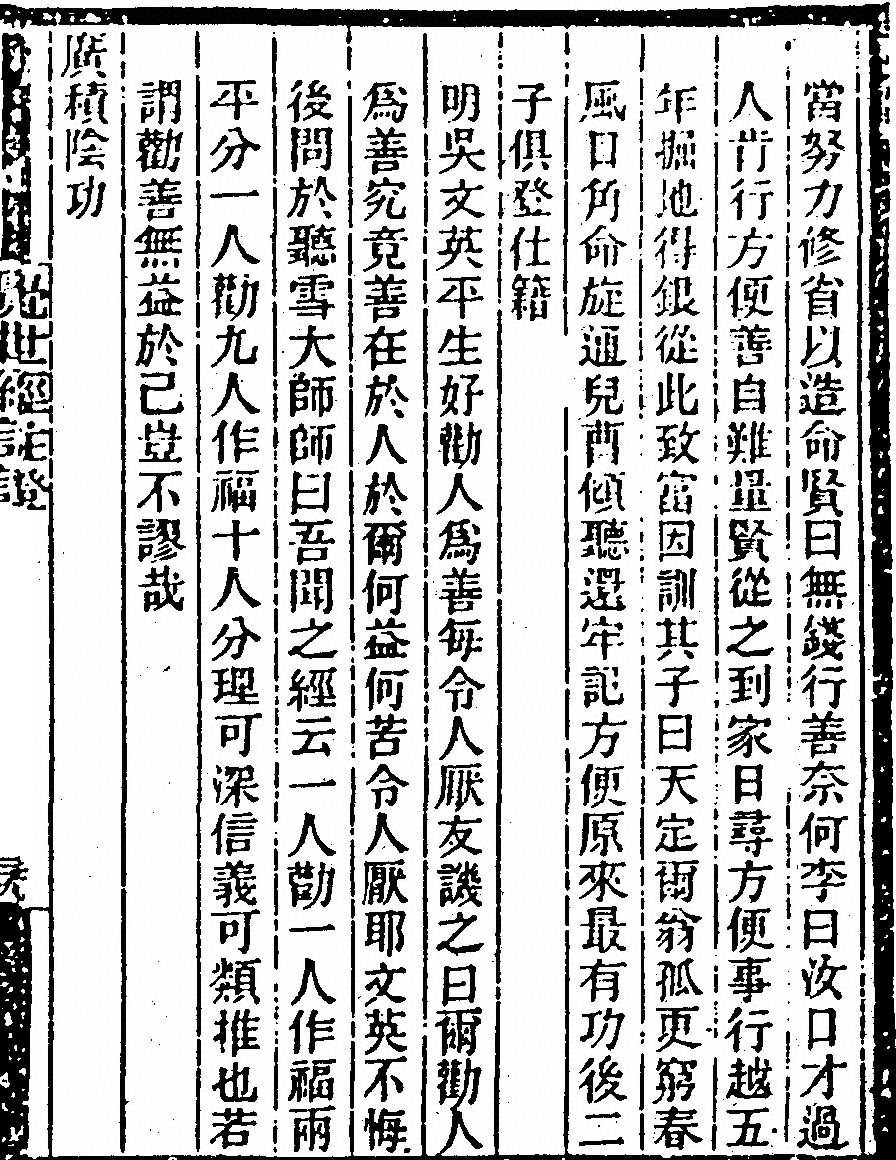 當努力修省以造命賢曰無錢行善奈何李曰汝口才過
人肯行方便善自難量賢從之到家日尋方便事行越五
年掘地得銀從此致富因訓其子曰天定爾翁孤更窮春
風日角命旋通兒曹傾聽還牢記方便原來最有功後二
子俱登仕籍
明吳文英平生好勸人為善每令人厭友譏之曰爾勸人
為善究竟善在於人於爾何益何苦令人厭耶文英不悔
後問於聽雪大師師曰吾聞之經云一人勸一人作福兩
平分一人勸九人作福十人分理可深信義可類推也若
謂勸善無益於己豈不謬哉
廣積陰功
世經註證